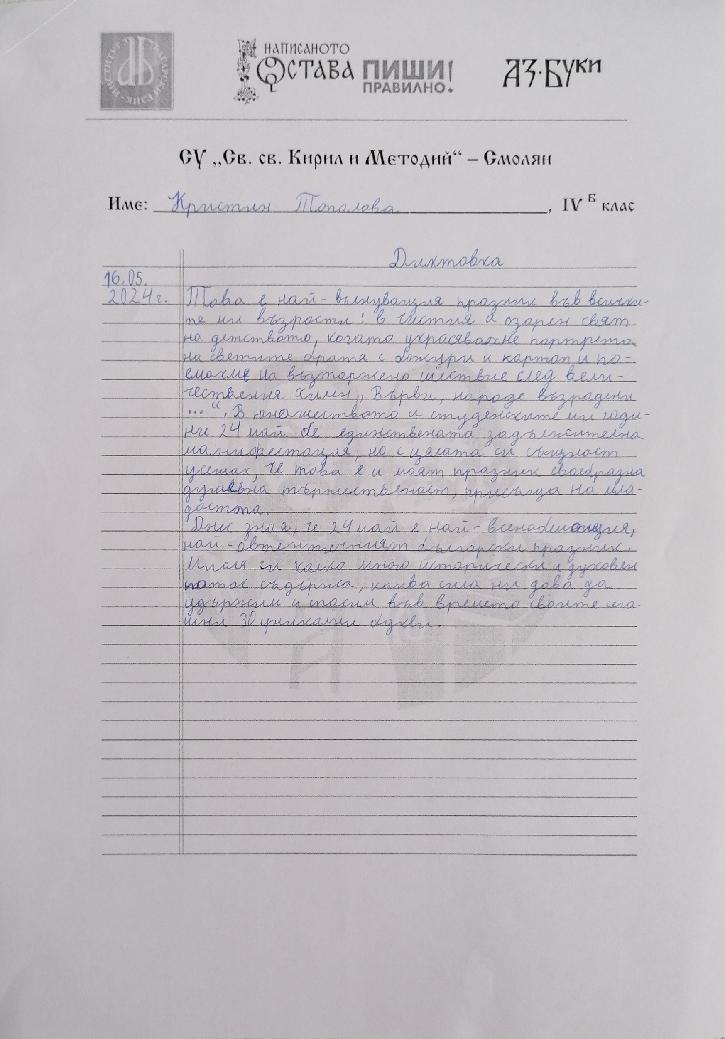 ИНСТИТУТ БЪЛГАРСКИ ЕЗИК
НАПИСАНОТО
ОСТАВА ПИШИ
ПРАВИЛНО!
АЗ·БУКИ
СУ „Св. св. Кирил и Методий“ – Смолян
Име: Кристин Топалова, IV Б клас
Диктовка
16.05.
2024г. Това е най-вълнуващия празник във всички-
те ни възрасти: в чистия и озарен свят
на детството, когато украсявахме портрета
на светите братя с божури и картоп и по-
емахме на възторжено шествие след вели-
чествения химн „Върви, народе възродени
...“. В юношеството и студенските ни годи-
ни 24 май бе единствената задължителна
манифестация, но с цялата си същност
усещах, че това е и моят празник своебразна
душевна тържественост, присъща на мла-
достта.
Днес зная, че 24 май е най-всенобионция,
най-автентичният български празник.
Мисля си какъв много исторически и духовен
патос съдържа, каква сила ни дава да
удържим и спасим във времето своите ма-
лки 30 уникални букви.